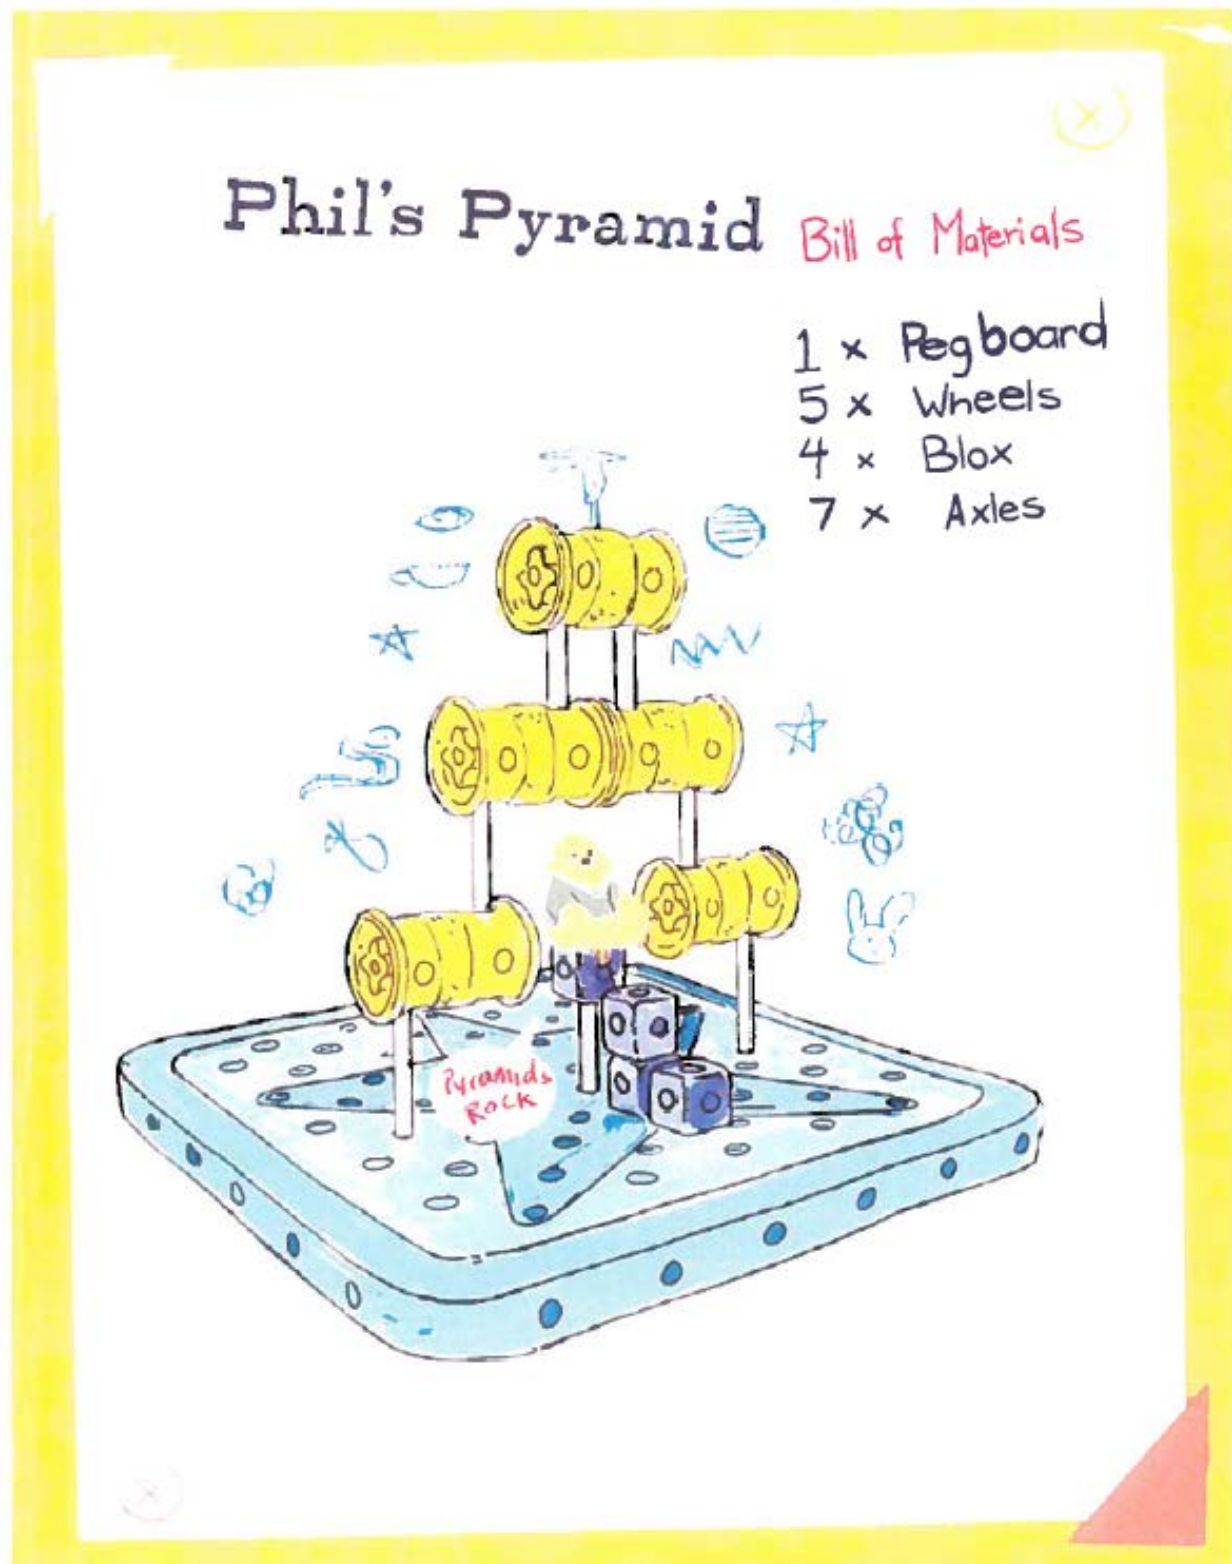 Phil's Pyramid Bill of Materials
1 x Pegboard
5 x Wheels
4 x Blox
7 x Axles
Pyramids
Rock